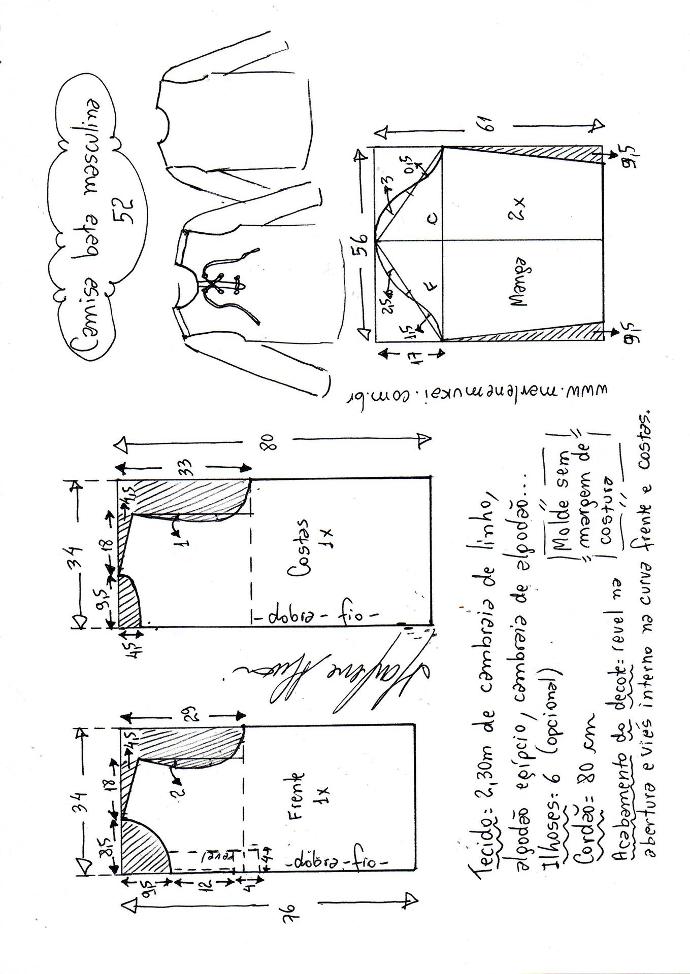 Camisa bata masculina
52
56
61
17
2,5
1,5
3
0,5
F
C
Manga
2x
9,5
9,5
www.marlenemukai.com.br
34
9,5
18
4,5
4,5
33
80
1
Costas
1x
-dobra-fio-
34
8,5
18
4,5
9,5
12
4
4
29
76
2
revel
Frente
1x
-dobra-fio-
Tecido: 2,30m de cambraia de linho,
algodão egípcio, cambraia de algodão...
Ilhoses: 6 (opcional)
Cordão: 80 cm
Acabamento do decote: revel na
abertura e viés interno na curva frente e costas.
Molde sem
margem de
costura